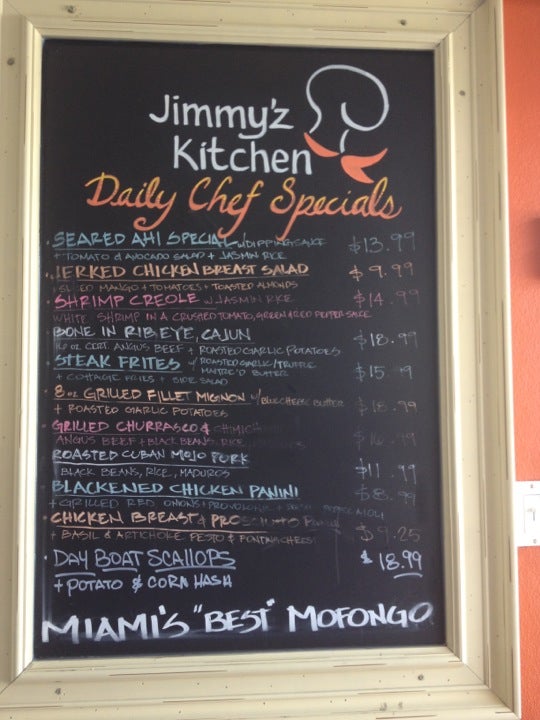 Jimmy'z
Kitchen
Daily Chef Specials
SEARED AHI SPECIAL w/ DIPPING SAUCE $13.99
+ TOMATO & AVOCADO SALAD + JASMIN RICE
JERKED CHICKEN BREAST SALAD $9.99
MANGO + TOMATOES + TOASTED ALMONDS
SHRIMP CREOLE w/ JASMIN RICE $14.99
WHITE SHRIMP IN A CRUSHED TOMATO, GREEN & RED PEPPER SAUCE
BONE IN RIBEYE, CAJUN $18.99
16 OZ CERT. ANGUS BEEF + ROASTED GARLIC POTATOES
STEAK FRITES w/ ROASTED GARLIC/TRUFFLE $15.99
MAITRE'D BUTTER
+ COTTAGE FRIES + SIDE SALAD
8 OZ GRILLED FILLET MIGNON w/ BLUE CHEESE BUTTER $18.99
+ ROASTED GARLIC POTATOES
GRILLED CHURRASCO &
ANGUS BEEF + BLACK BEANS, RICE
ROASTED CUBAN MOJO PORK $11.99
BLACK BEANS, RICE, MADUROS
BLACKENED CHICKEN PANINI $8.99
+ GRILLED RED ONIONS + PROVOLONE +
CHICKEN BREAST & PROSCIUTTO $9.25
+ BASIL & ARTICHOKE PESTO & FONTINA CHEESE
DAY BOAT SCALLOPS $18.99
+ POTATO & CORN HASH
MIAMI'S "BEST" MOFONGO